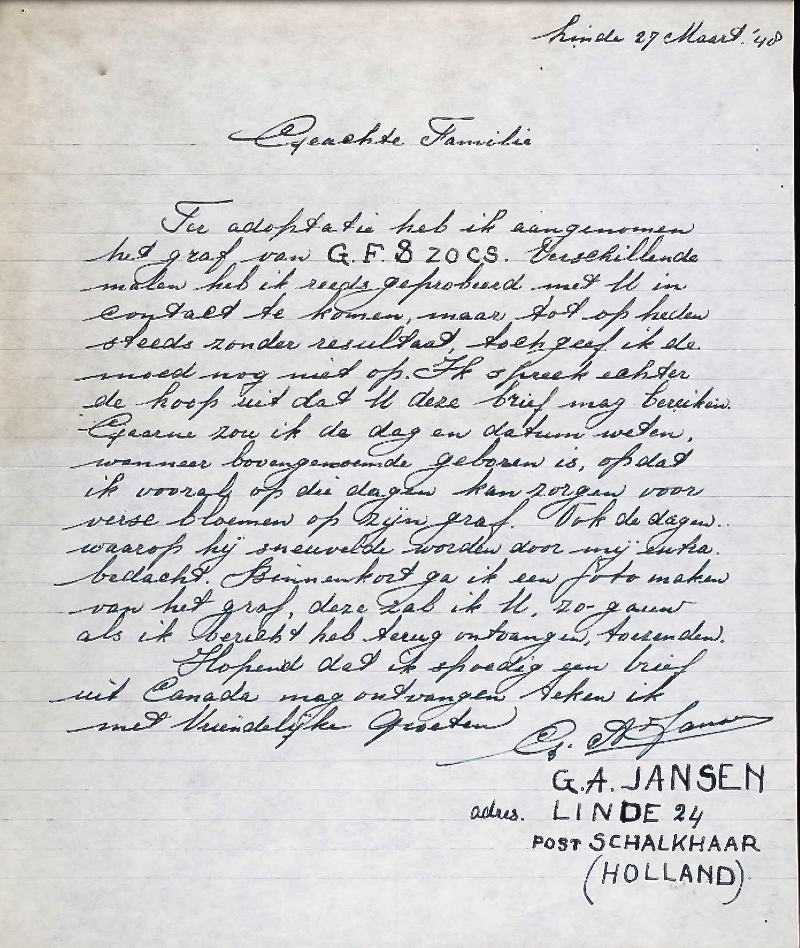 Linde 27 Maart '48
Geachte Familie
Ter adoptatie heb ik aangenomen
het graf van G.F. SZOCS. Verschillende
malen heb ik reeds geprobeerd met U in
contact te komen, maar tot op heden
steeds zonder resultaat, toch geef ik de
moed nog niet op. Ik spreek echter
de hoop uit dat U deze brief mag bereiken.
Gaarne zou ik de dag en datum weten,
wanneer bovengenoemde geboren is, opdat
ik vooral op die dagen kan zorgen voor
verse bloemen op zijn graf. Ook de dagen..
waarop hij sneuvelde worden door mij extra.
bedacht. Binnenkort ga ik een foto maken
van het graf, deze zal ik U, zo-gauw
als ik bericht heb terug ontvangen, toezenden.
Hopend dat ik spoedig een brief
uit Canada mag ontvangen teken ik
met Vriendelijke Groeten
G. A. Jansen
G.A. JANSEN
adres. LINDE 24
POST SCHALKHAAR
(HOLLAND)